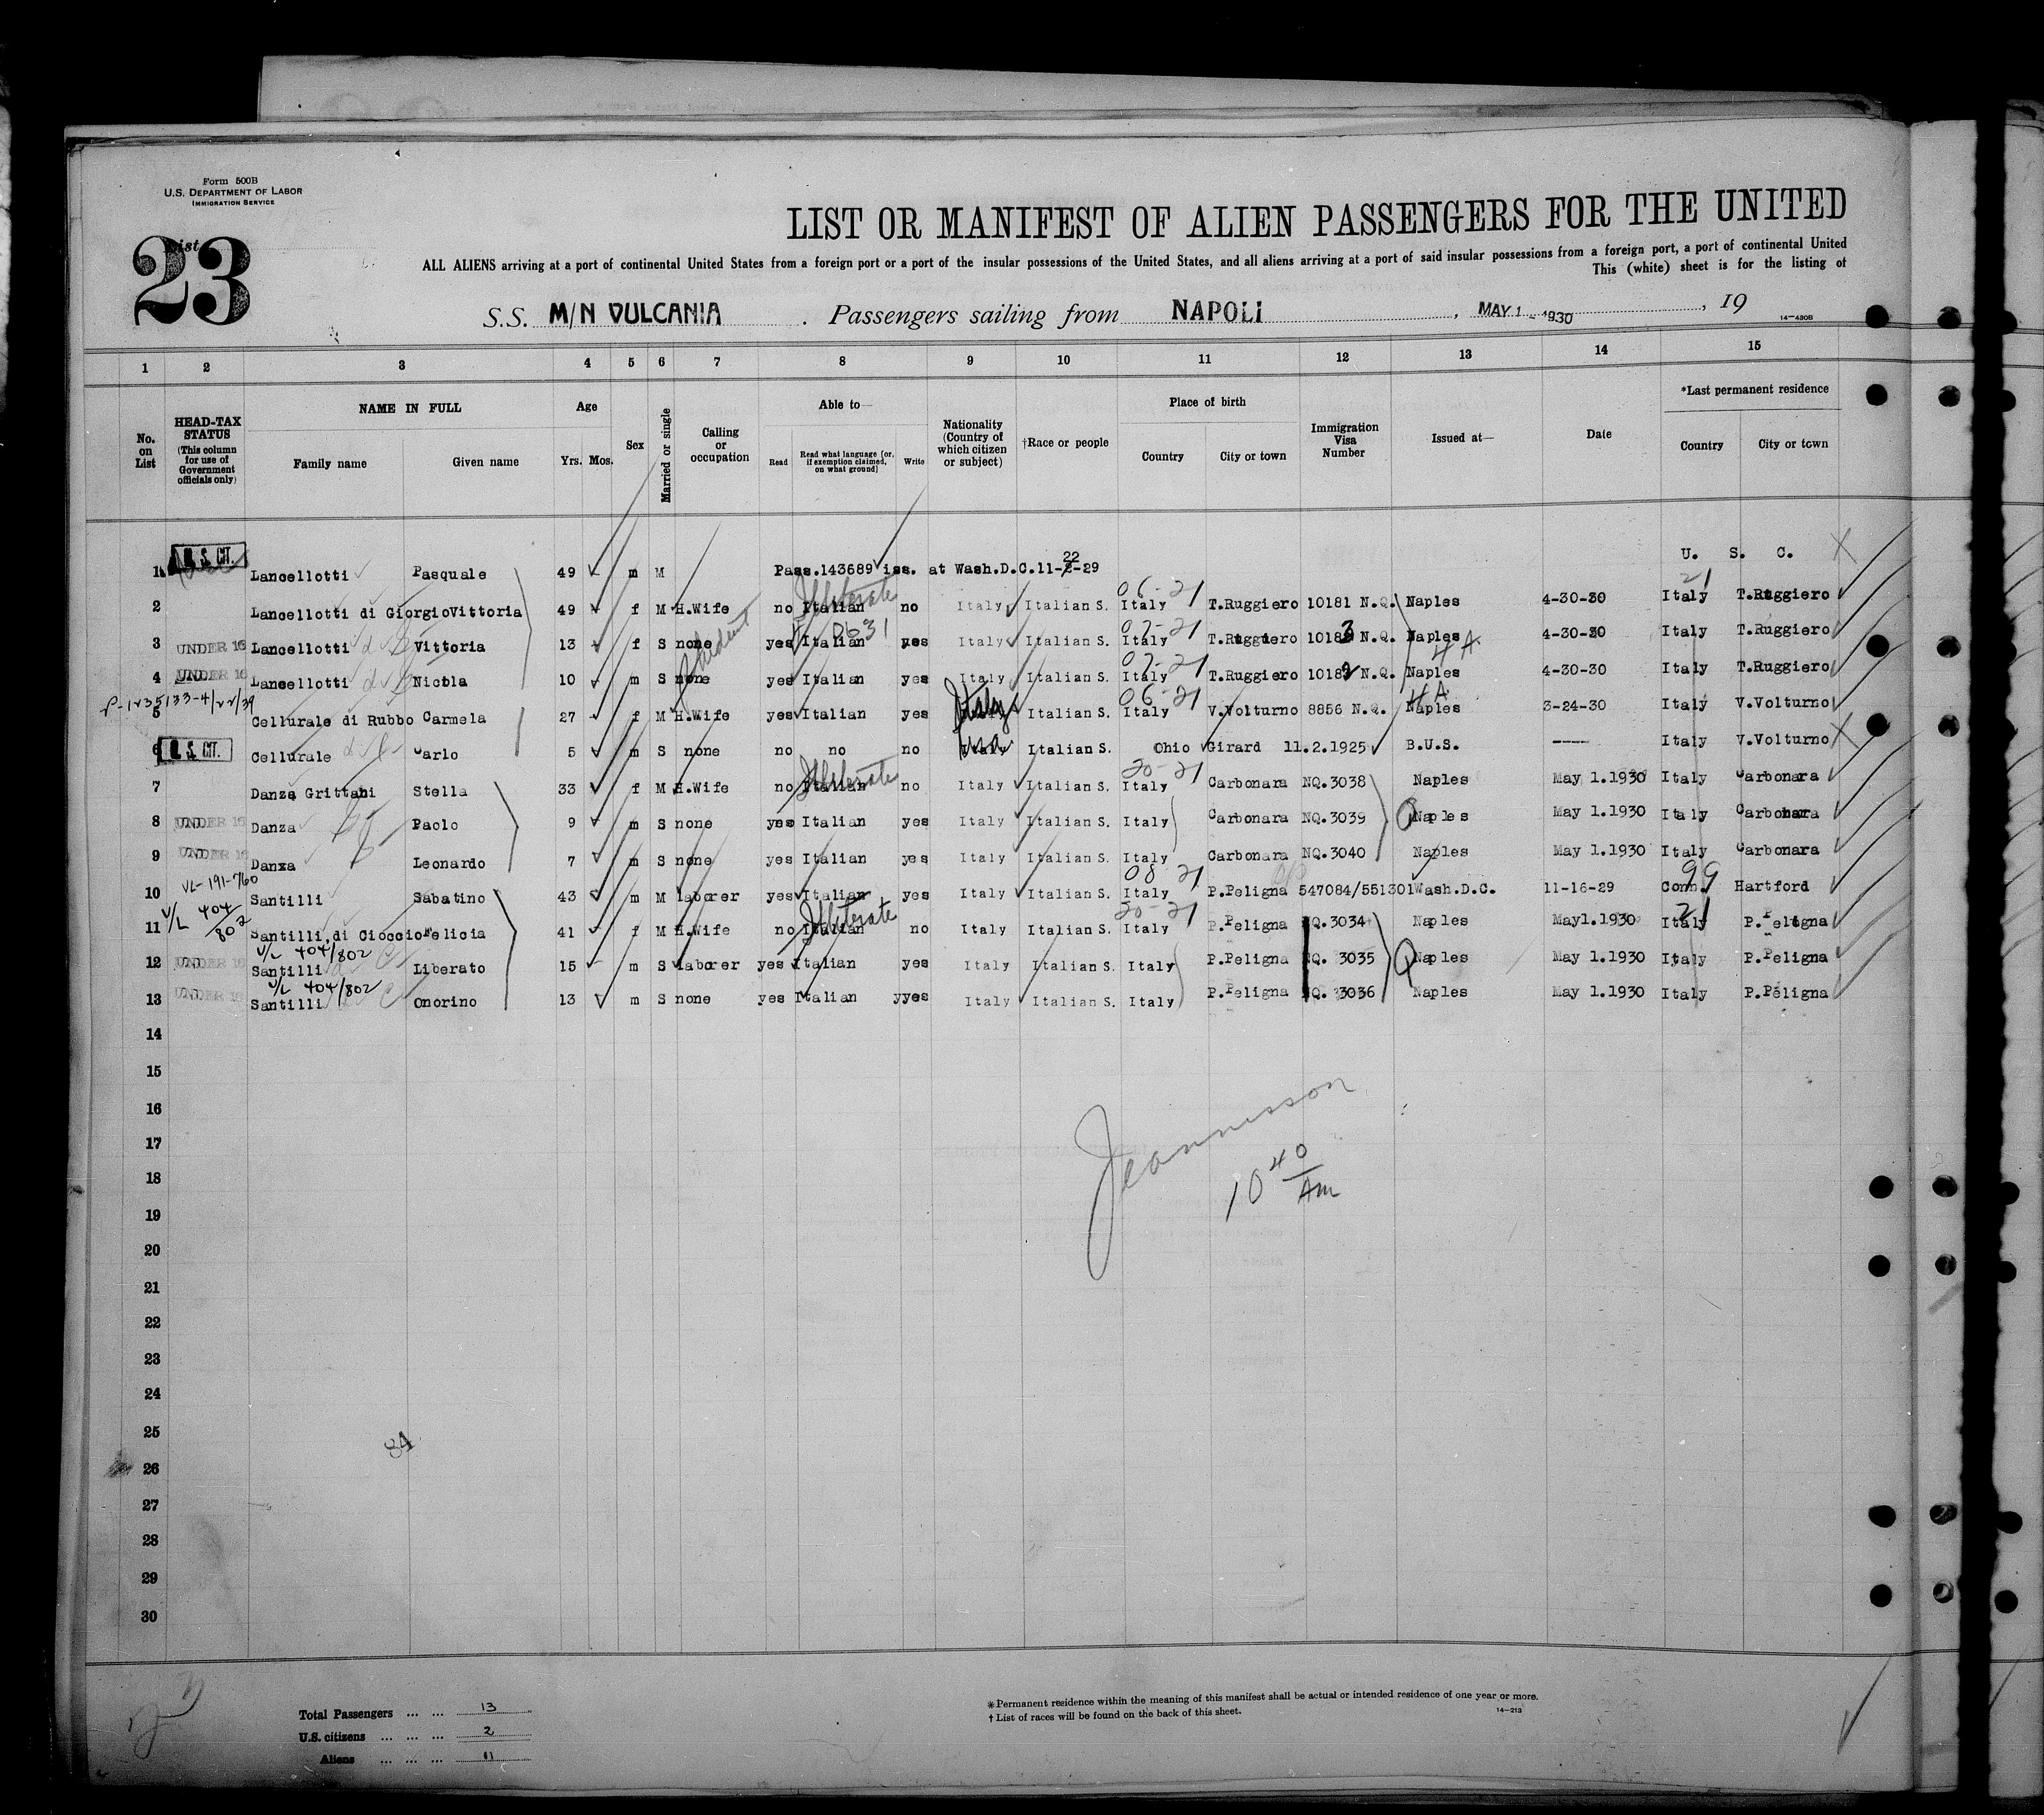 Form 500B
U.S. DEPARTMENT OF LABOR
IMMIGRATION SERVICE
List 23
LIST OR MANIFEST OF ALIEN PASSENGERS FOR THE UNITED
ALL ALIENS arriving at a port of continental United States from a foreign port or a port of the insular possessions of the United States, and all aliens arriving at a port of said insular possessions from a foreign port, a port of continental United
This (white) sheet is for the listing of
S.S. M/N VULCANIA . Passengers sailing from NAPOLI , MAY 1 - 1930 , 19
14-430B
1 2 3 4 5 6 7 8 9 10 11 12 13 14 15
No. on List
HEAD-TAX STATUS (This column for use of Government officials only)
NAME IN FULL
Family name Given name
Age
Yrs. Mos.
Sex
Married or single
Calling or occupation
Able to—
Read Read what language (or, if exemption claimed, on what ground) Write
Nationality (Country of which citizen or subject)
†Race or people
Place of birth
Country City or town
Immigration Visa Number
Issued at—
Date
*Last permanent residence
Country City or town
1 U.S. CIT. Lancellotti Pasquale 49 m M Pass.143689 iss. at Wash.D.C.11-22-29 U. S. C.
2 Lancellotti di Giorgio Vittoria 49 f M H.Wife no Italian Illiterate no Italy Italian S. Italy 06-21 T.Ruggiero 10181 N.Q. Naples 4-30-30 Italy 21 T.Ruggiero
3 UNDER 16 Lancellotti Vittoria 13 f S none yes Italian 0631 yes Italy Italian S. Italy 07-21 T.Ruggiero 10183 N.Q. Naples 4-30-30 Italy T.Ruggiero
4 UNDER 16 Lancellotti Nicola 10 m S none yes Italian yes Italy Italian S. Italy 07-21 T.Ruggiero 10182 N.Q. Naples 4 A 4-30-30 Italy T.Ruggiero
5 Cellurale di Rubbo Carmela 27 f M H.Wife yes Italian yes Italy Italian S. Italy 06-21 V.Volturno 8856 N.Q. Naples 4 A 3-24-30 Italy V.Volturno
6 U.S. CIT. Cellurale Carlo 5 m S none no no no Italian S. Ohio Girard 11.2.1925 B.U.S. ---- Italy V.Volturno
7 Danza Grittani Stella 33 f M H.Wife no Italian Illiterate no Italy Italian S. Italy 20-21 Carbonara NQ.3038 Naples May 1.1930 Italy Carbonara
8 UNDER 16 Danza Paolo 9 m S none yes Italian yes Italy Italian S. Italy Carbonara NQ.3039 Q Naples May 1.1930 Italy Carbonara
9 UNDER 16 Danza Leonardo 7 m S none yes Italian yes Italy Italian S. Italy Carbonara NQ.3040 Naples May 1.1930 Italy Carbonara
VL-191-760
10 Santilli Sabatino 43 m M laborer yes Italian yes Italy Italian S. Italy 08 21 P.Peligna 547084/551301 Wash.D.C. 11-16-29 Conn. 99 Hartford
V/L 404/802
11 Santilli,di Cioccio Felicia 41 f M H.Wife no Italian Illiterate no Italy Italian S. Italy 20-21 P.Peligna NQ.3034 Naples May1.1930 Italy 21 P.Peligna
V/L 404/802
12 UNDER 16 Santilli Liberato 15 m S laborer yes Italian yes Italy Italian S. Italy P.Peligna NQ. 3035 Q Naples May 1.1930 Italy P.Peligna
V/L 404/802
13 UNDER 16 Santilli Onorino 13 m S none yes Italian yyes Italy Italian S. Italy P.Peligna NQ. 3036 Naples May 1.1930 Italy P.Peligna
14
15
16
17
18
19
20
21
22
23
24
25
26
27
28
29
30
10 40 Am
84
Total Passengers ... ... 13
U.S. citizens ... ... ... 2
Aliens ... ... ... 11
*Permanent residence within the meaning of this manifest shall be actual or intended residence of one year or more.
†List of races will be found on the back of this sheet.
14-213